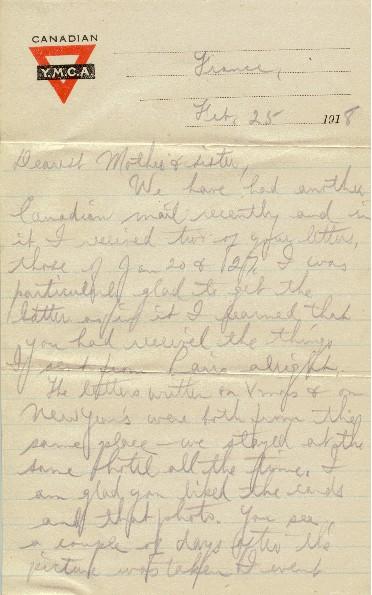 CANADIAN
Y.M.C.A
France,
Feb. 25 1918
Dearest Mother & sister,
We have had another
Canadian mail recently and in
it, I received two of your letters,
those of Jan 20 & 27. I was
particularly glad to get the
latter as in it I learned that
you had received the things
I sent from Paris alright.
The letters written on Xmas & on
New Year's were both from the
same place - we stayed at the
same hotel all the time. I
am glad you liked the cards
and that photo. You see,
a couple of days after the
picture was taken I went